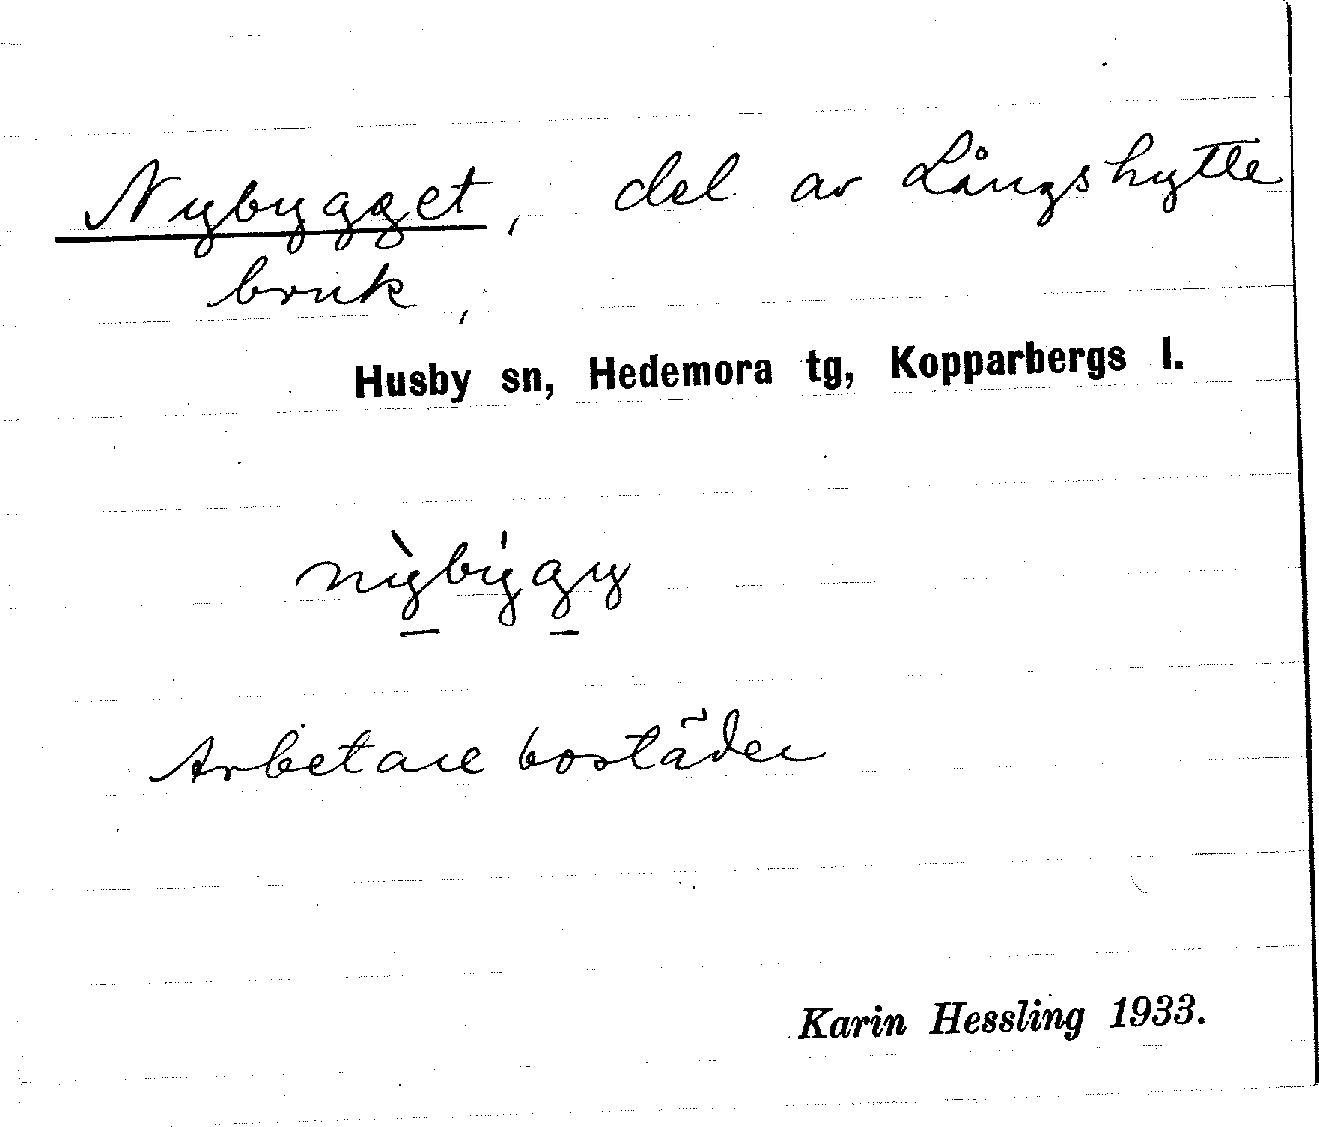 Nybygget, del av Långshytte
bruk,
Husby sn, Hedemora tg, Kopparbergs l.
nỳbýgy
Arbetare bostäder
Karin Hessling 1933.